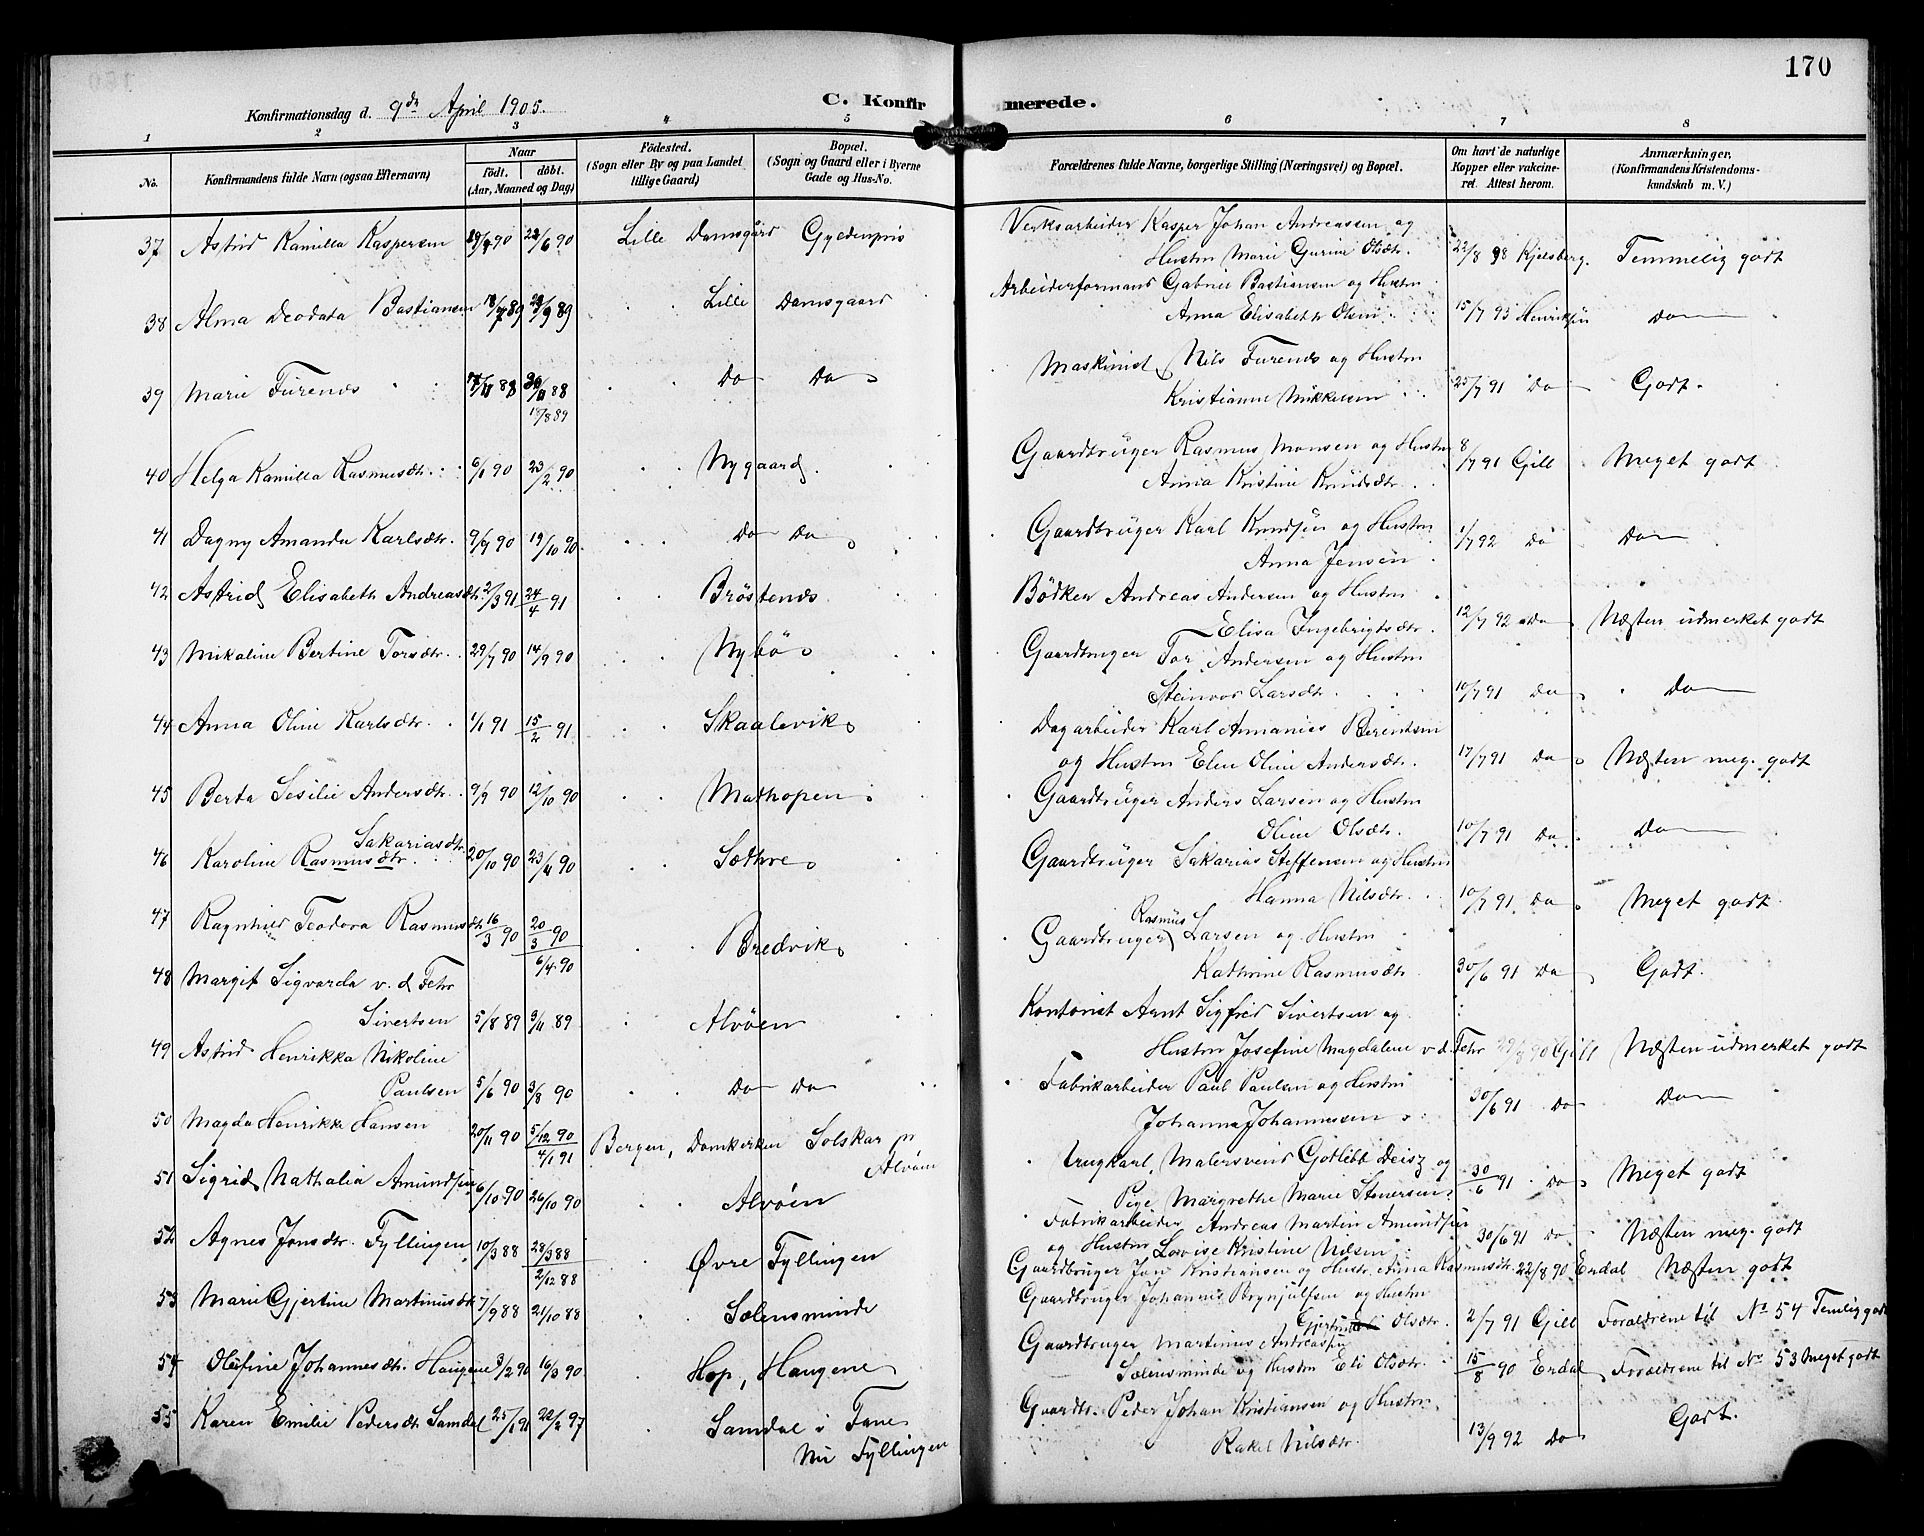 170
Konfirmationsdag d. 9de April 1905.
C. Konfirmerede.
1 2 3 4 5 6 7 8
No.
Konfirmandens fulde Navn (ogsaa Efternavn)
Naar
födt. döbt.
(Aar, Maaned og Dag)
Födested.
(Sogn eller By og paa Landet
tillige Gaard)
Bopæl.
(Sogn og Gaard eller i Byerne
Gade og Hus-No.
Forældrenes fulde Navne, borgerlige Stilling (Næringsvei) og Bopæl.
Om havt de naturlige
Kopper eller vakcineret. Attest herom.
Anmærkninger.
(Konfirmandens Kristendoms-
kundskab m. V.)
37 Astrid Kamilla Kaspersen 90 90 Lille Damsgård Gyldenpris Verksarbeider Kasper Johan Andreassen og
Hustru Marie Gurine Olsdtr. 22/8 98 Kjelsberg. Temmelig godt
38 Alma Deodata Bastiansen 18/7 89 89 Lille Damsgaard Arbeiderformand Gabriel Bastiansen og Hustru
Anna Elisabeth Olsen 15/7 93 Henriksen Do
39 Marie Furenes 88 88 Do Do Maskinist Nils Furenes og Hustru
18/8 89
Kristianne Mikkelsen 25/7 91 Do Godt.
40 Helga Kamilla Rasmusdtr. 6/1 90 23/2 90 Nygaard. Gaardbruger Rasmus Monsen og Hustru
Anna Kristine Knudsdtr. 8/7 91 Gill Meget godt
41 Dagny Amanda Karlsdtr. 9/9 90 19/10 90. Do Do Gaardbruger Karl Knudsen og Hustru
Anna Jensen 1/7 92 Do Do
42 Astrid Elisabeth Andreasdtr. 2/3 91 24/4 91 Bröstenes Bödker Andreas Andersen og Hustru
Elisa Ingebrigtsdtr. 12/7 92 Do Næsten udmerket godt
43 Mikaline Bertine Torsdtr. 29/7 90 14/9 90 Nybö Gaardbruger Tor Andersen og Hustru
Steinvor Larsdtr. 10/7 91 Do Do
44 Anna Oline Karlsdtr. 1/1 91 15/2 91 Skaalevik Dagarbeider Karl Annanias Berentsen
og Hustru Elen Oline Andersdtr. 17/7 91 Do Næsten meg. godt
45 Berta Sesilie Andersdtr. 9/9 90 12/10 90 Mathopen Gaardbruger Anders Larsen og Hustru
Oline Olsdtr. 10/7 91 Do Do
Sakariasdtr.
46 Karoline Rasmusdtr. 20/10 90 23/11 90 Sæthre Gaardbruger Sakarias Steffensen og Hustru
Hanna Nilsdtr. 10/7 91. Do Meget godt
47 Ragnhild Teodora Rasmusdtr. 16/3 90 20/3 90 Bredvik Gaardbruger Rasmus Larsen og Hustru
6/4 90
Kathrine Rasmusdtr. 30/6 91 Do Godt.
48 Margit Sigvarda v. d Fehr
Sivertsen 5/8 89 3/11 89 Alvöen Kontorist Arnt Sigfred Sivertsen og
Hustru Josefine Magdalene v d. Fehr 90 Gill Næsten udmerket godt
49 Astrid Henrikka Nikoline
Paulsen 5/6 90 3/8 90 Do Do Fabrikarbeider Paul Paulsen og Hustru
Johanna Johannesen 30/6 91 Do Do
50 Magda Henrikke Hansen 20/11 90 5/12 90 Bergen, Domkirken Solskar pr
4/1 91 Alvöen
Ungkarl, Malersvend Gotlebb Deisz og
Pige Margrethe Marie Stenersen 30/6 91 Do Meget godt
51 Sigrid Nathalia Amundsen 6/10 90 26/10 90 Alvöen Fabrikarbeider Andreas Martin Amundsen
og Hustru Lovise Kristine Nilsen 30/6 91 Do Næsten meg. godt
52 Agnes Jonsdtr. Fyllingen 10/3 88 28/3 88 Øvre Fyllingen Gaardbruger Jon Kristiansen og Hustr. Anna Rasmusdtr. 22/8 90 Erdal Næsten godt
2/12 88
53 Marie Gjertine Martinusdtr. 7/9 88 21/10 88 Sælensminde Gaardbruger Johannes Brynjulfsen og Hustru
Gjertrud Olsdtr. 2/7 91 Gill Forældrene til No 54 Temlig godt
54 Olufine Johannesdtr. Haugene 3/2 90 16/3 90 Hop, Haugene Gaardbruger Martinus Andreassen
Sælensminde og Hustru Eli Olsdtr. 15/8 90 Erdal Forældrene til No 53 Meget godt
55 Karen Emilie Pedersdtr. Samdal 25/1 91 22/2 97 Samdal i Fane
Nu Fyllingen
Gaardb. Peder Johan Kristiansen og Hustru
Rakel Nilsdtr. 13/9 92 Do Godt.